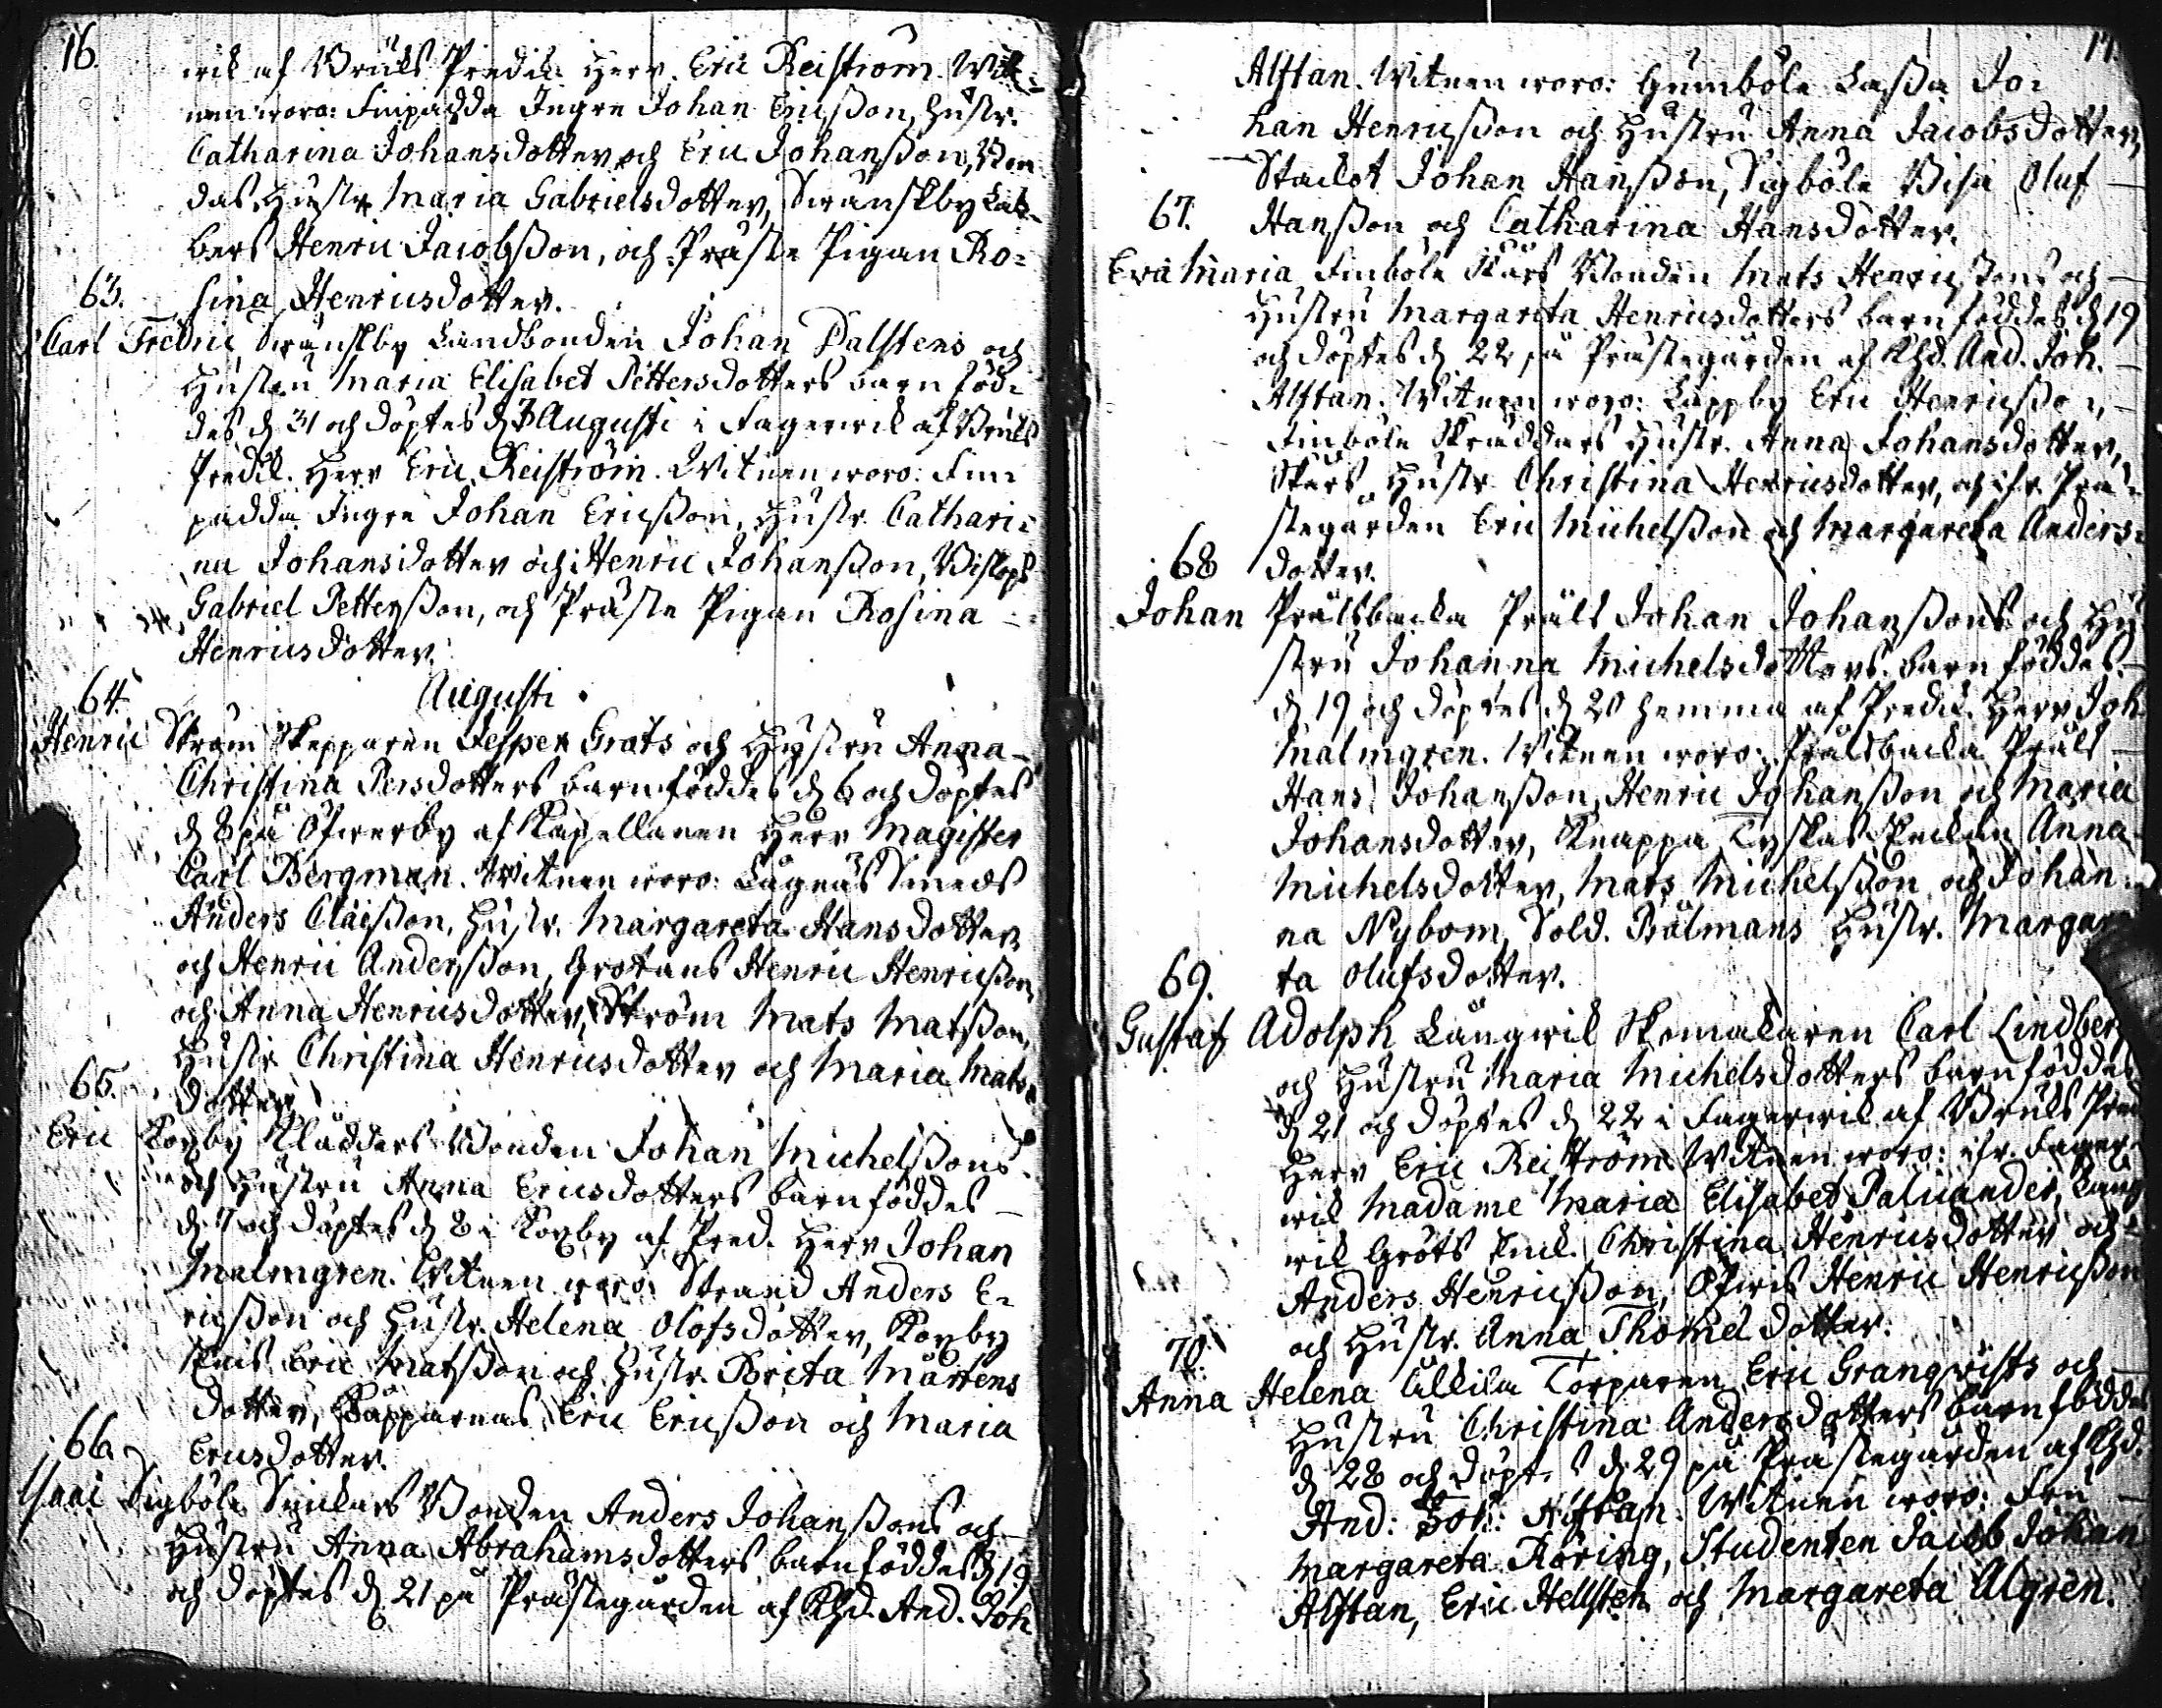 16.
wik af Bruks Predik. Herr Eric Reiström. Wit-
nen woro: Finpadda Ingre Johan Ericsson, Hustr.
Catharina Johansdotter och Eric Johansson, Bon-
das Hustr. Maria Gabrielsdotter, Swanskby
bers Henric Jacobsson, och Präste Pigan Ro=
63. sina Henricsdotter.
Carl Fredric Swanskby Landbonden Johan Dalstens och
Hustru Maria Elisabet Pettersdotters barn föd=
des d. 31 och döptes d. 3 Augusti i Fagerwik af Bruks
Predik. Herr Eric Reiström. Witnen woro: Fin=
padda Ingre Johan Ericsson, Hustr. Cathari=
na Johansdotter och Henric Johansson, Biskops
Gabriel Pettersson, och Präste Pigan Rosina
Henricsdotter.
Augusti.
64.
Henric Ström Skepparen Jesper Grats och Hustru Anna
Christina Persdotters barn föddes d. 6 och döptes
d. 8 på Öfwerby af Kapellanen Herr Magister
Carl Bergman. Witnen woro: Lågnäs Smeds
Anders Claësson, Hustr. Margareta Hansdotter
och Henric Andersson, Grotans Henric Henricsson
och Anna Henricsdotter, Ström Mats Matsson,
Hustr. Christina Henricsdotter och Maria Mats=
65. dotter.
Eric Koxby Klädders Bonden Johan Michelssons
och Hustru Anna Ericsdotters barn föddes
d. 7 och döptes d. 8 i Koxby af Pred. Herr Johan
Malmgren. Witnen woro: Strand Anders E=
ricsson och Hustr. Helena Olofsdotter, Koxby
Eric Matsson och Hustr. Brita Mårtens
dotter, Eric Ericsson och Maria
66. Ericsdotter.
Isaac Sigböle Snickars Bonden Anders Johanssons och
Hustru Anna Abrahamsdotters barn föddes d. 19
och döptes d. 21 på Prästegården af Khd. And. Joh
17.
Alftan. Witnen woro: Humböle Lassa Jo=
han Henricsson och Hustru Anna Jacobsdotter,
Johan Hansson, Sigböle Bisa Oluf
67. Hansson och Catharina Hansdotter.
Eva Maria Finböle Skärs Bonden Mats Henricssons och
Hustru Margareta Henricsdotters barn föddes d. 19
och döptes d. 22 på Prästegården af Khd. And. Joh.
Alftan. Witnen woro: Lappby Eric Henricsson,
Finböle Skräddars Hustr. Anna Johansdotter,
Skärs Hustr. Christina Henricsdotter, och ifr. Prä=
stegården Eric Michelsson och Margareta Anders=
68 dotter.
Johan Prälsbacka Präls Johan Johanssons och Hu
stru Johanna Michelsdotters barn föddes
d. 19 och döptes d. 20 hemma af Predik. Herr Joh.
Malmgren. Witnen woro: Prälsbacka Präls
Hans Johansson, Henric Johansson och Maria
Johansdotter, Knappa Tyskas Anna
Michelsdotter, Mats Michelsson och Johan=
na Nybom, Sold. Bålmans Hustr. Margare
69. ta Olufsdotter.
Gustaf Adolph Långwik Skomakaren Carl Lindberg
och Hustru Maria Michelsdotters barn föddes
d. 21 och döptes d. 22 i Fagerwik af Bruks Pred
Herr Eric Reiström. Witnen woro: ifr. Fager=
wik Madame Maria Elisabet Paluander, Lång
wik Gröts Enk. Christina Henricsdotter och
Anders Henricsson, Öfwis Henric Henricsson
och Hustr. Anna Thomedotter.
70.
Anna Helena Ulkila Torparen Eric Granqvists och
Hustru Christina Andersdotters barn föddes
d. 28 och döptes d. 29 på Prästegården af Khd.
And: Joh: Alftan. Witnen woro: Fru
Margareta Röring, Studenten Jacob Johan
Alftan, Eric Hellsten och Margareta Algren.